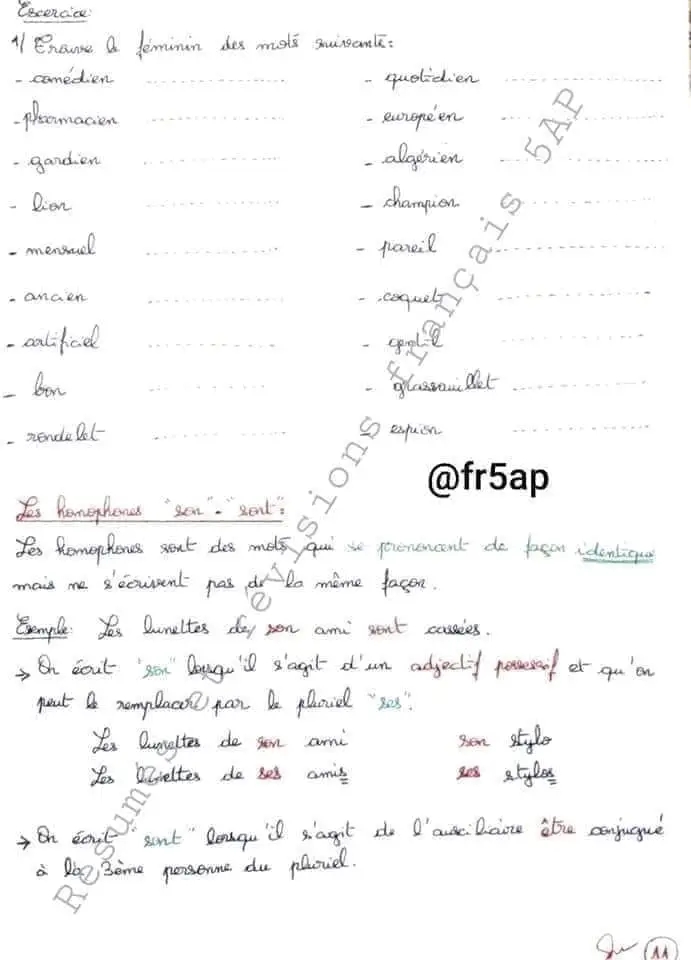 Exercice:
1/ Trouve le féminin des mots suivants:
- comédien ............ - quotidien ............
- pharmacien ............ - européen ............
- gardien ............ - algérien ............
- lion ............ - champion ............
- mensuel ............ - pareil ............
- ancien ............ - coquet ............
- artificiel ............ - gentil ............
- bon ............ - grassouillet ............
- rondelet ............ - espion ............
@fr5ap
Les homophones "son" - "sont":
Les homophones sont des mots qui se prononcent de façon identique
mais ne s'écrivent pas de la même façon.
Exemple: Les lunettes de son ami sont cassées.
→ On écrit "son" lorsqu'il s'agit d'un adjectif possessif et qu'on
peut le remplacer par le pluriel "ses".
Les lunettes de son ami son stylo
Les lunettes de ses amis ses stylos
→ On écrit "sont" lorsqu'il s'agit de l'auxiliaire être conjugué
à la 3ème personne du pluriel.
11
Resumes et revisions français 5AP